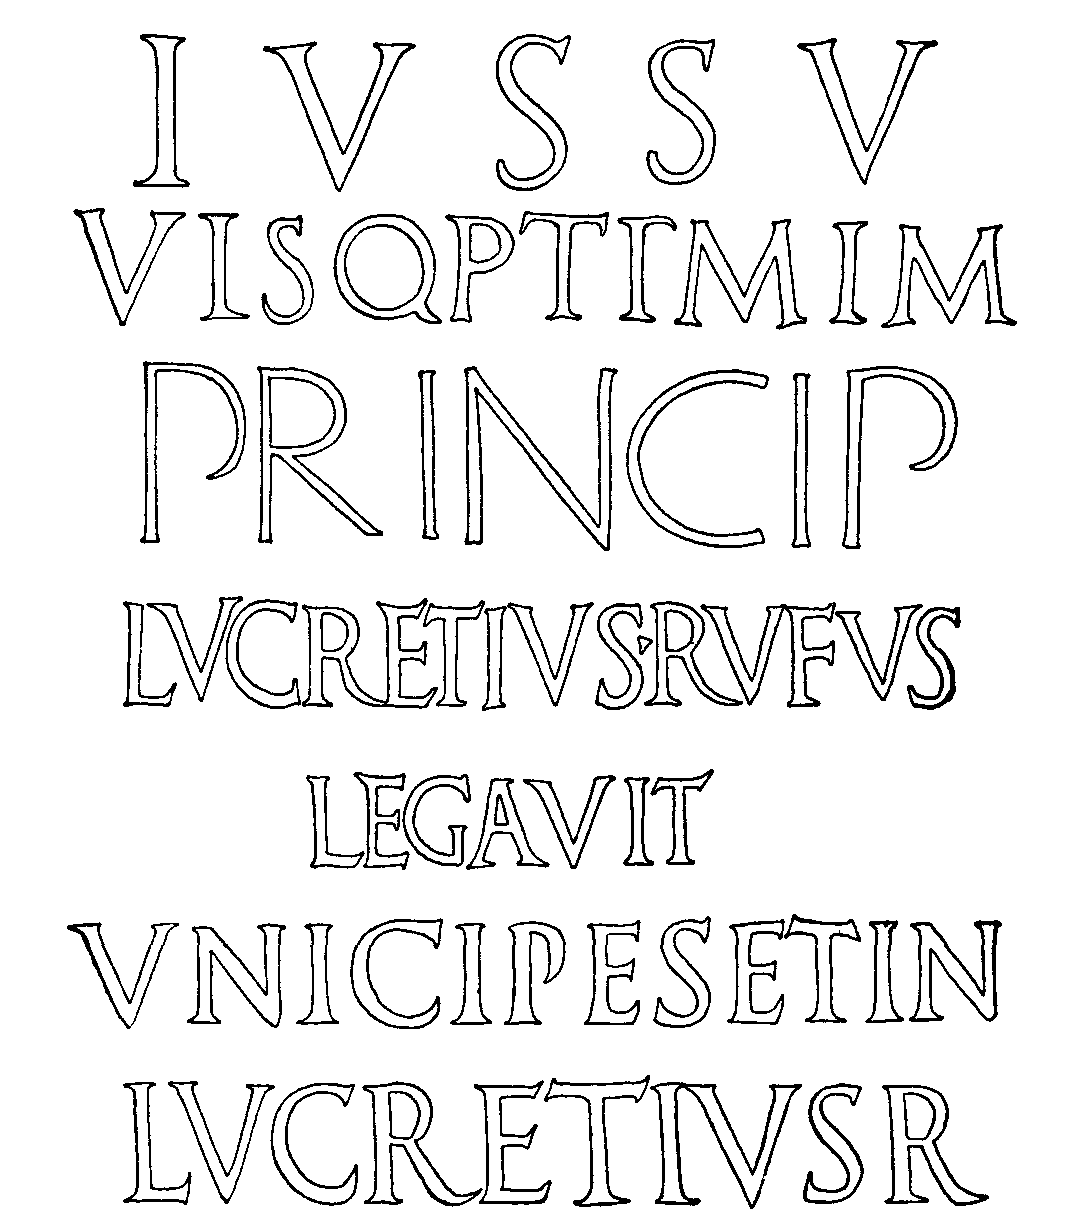 IVSSV
VISQPTIMIM
PRINCIP
LVCRETIVS·RVFVS
LEGAVIT
VNICIPESETIN
LVCRETIVSR